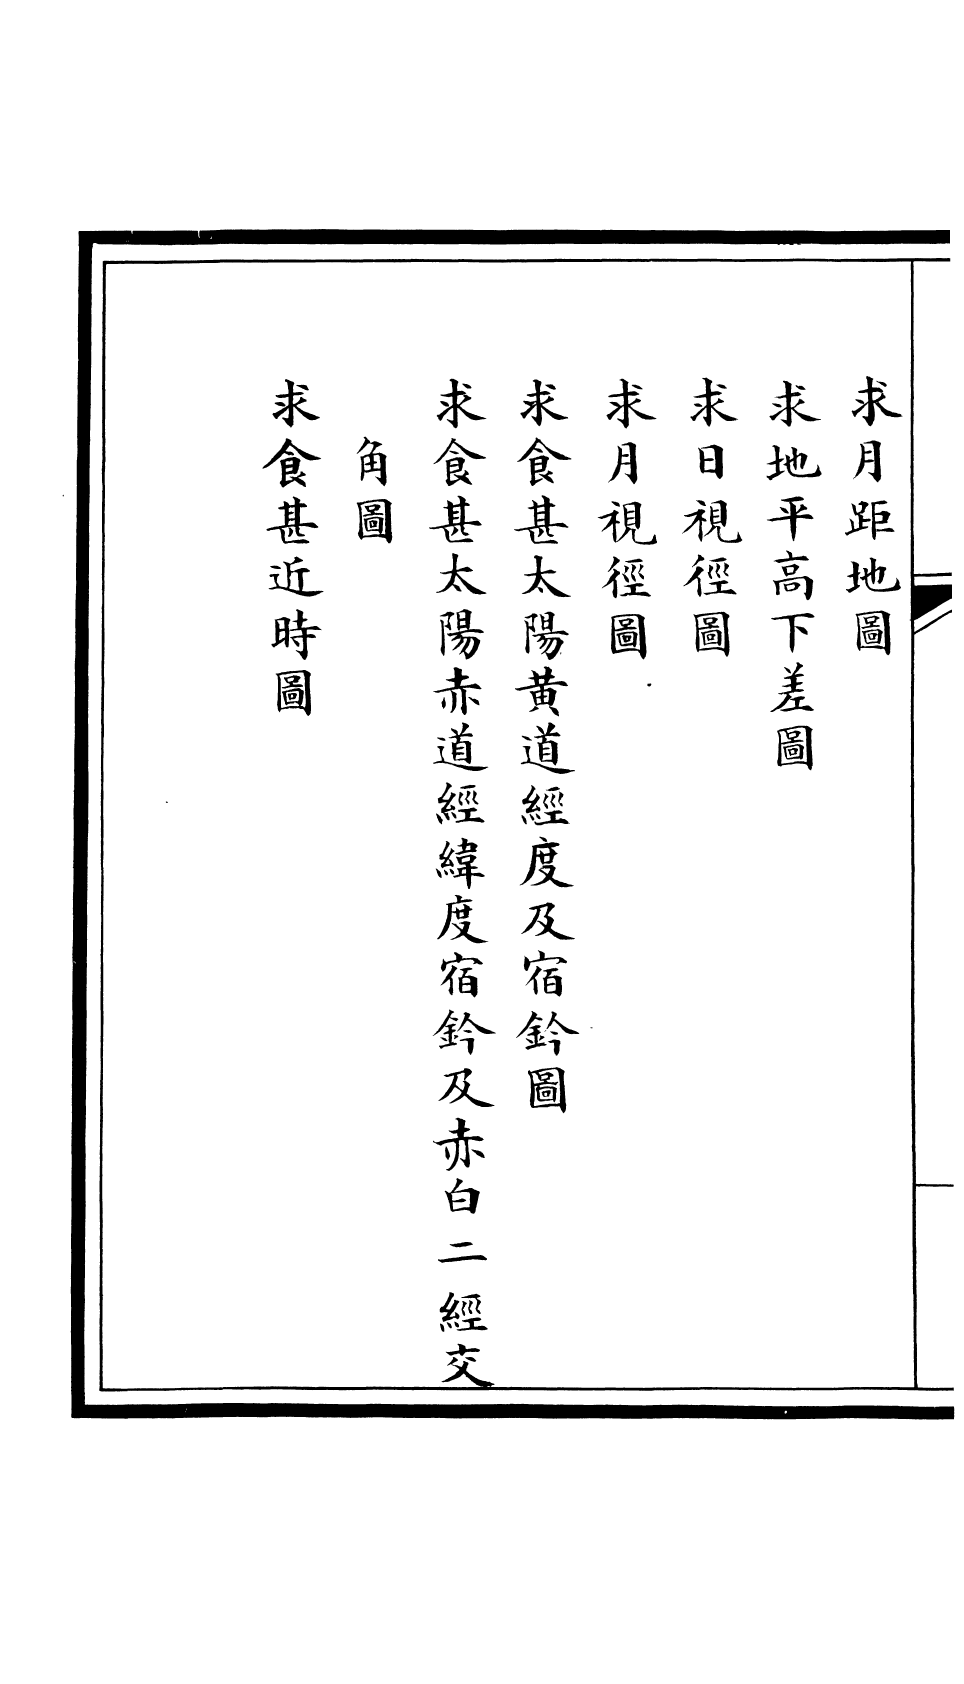 求月距地圖
求地平高下差圖
求日視徑圖
求月視徑圖
求食甚太陽黄道經度及宿鈐圖
求食甚太陽赤道經緯度宿鈐及赤白二經交
角圖
求食甚近時圖